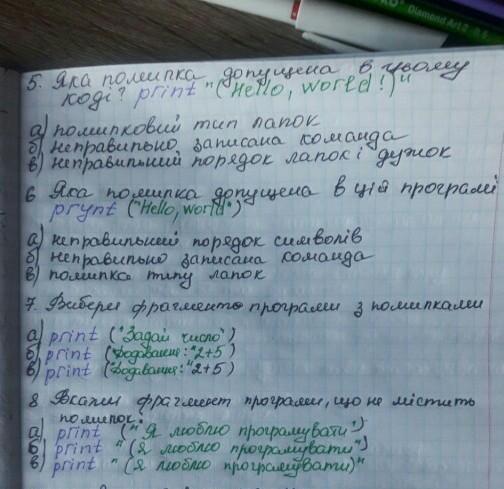 Diamond Art 2
5. Яка помилка допущена в цьому
коді? print "(Hello, world!)"
а) помилковий тип лапок
б) неправильно записана команда
в) неправильний порядок лапок і дужок
6 Яка помилка допущена в цій програмі
prynt ("Hello, world")
а) неправильний порядок символів
б) неправильно записана команда
в) помилка типу лапок
7. Вибери фрагменти програми з помилками
а) print ("Задай число")
б) print (Додавання:"2+5)
в) print (Додавання:"2+5)
8 Вкажи фрагмент програми, що не містить
помилок:
а) print ("Я люблю програмувати")
б) print "(Я люблю програмувати")
в) print "(Я люблю програмувати)"